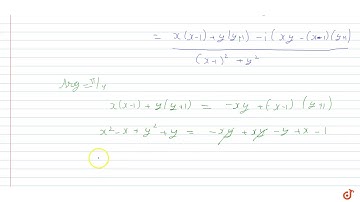 = x(x-1) + y(y+1) - i(xy - (x-1)(y+1)
(x-1)² + y²
arg = π/4
x(x-1) + y(y+1) = -xy + (x-1)(y+1)
x² - x + y² + y = -xy + xy - y + x - 1